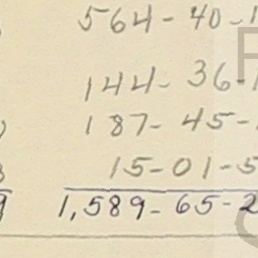 564-40-1
144-36-1
187-45-
15-01-5
1,589-65-2